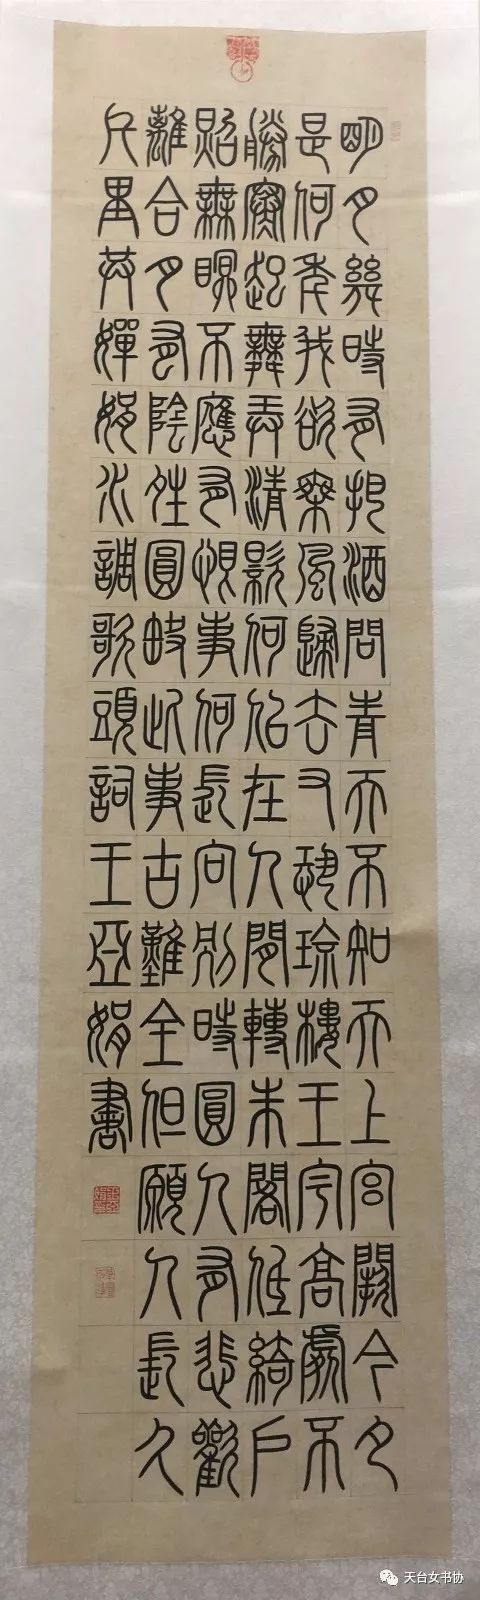 明月幾時有把酒問青天不知天上宮闕今夕
是何年我欲乘風歸去又恐瓊樓玉宇高處不
勝寒起舞弄清影何似在人間轉朱閣低綺戶
照無眠不應有恨事何長向別時圓人有悲歡
離合月有陰晴圓缺此事古難全但願人長久
千里共嬋娟水調歌頭詞王亞娟書
天台女书协